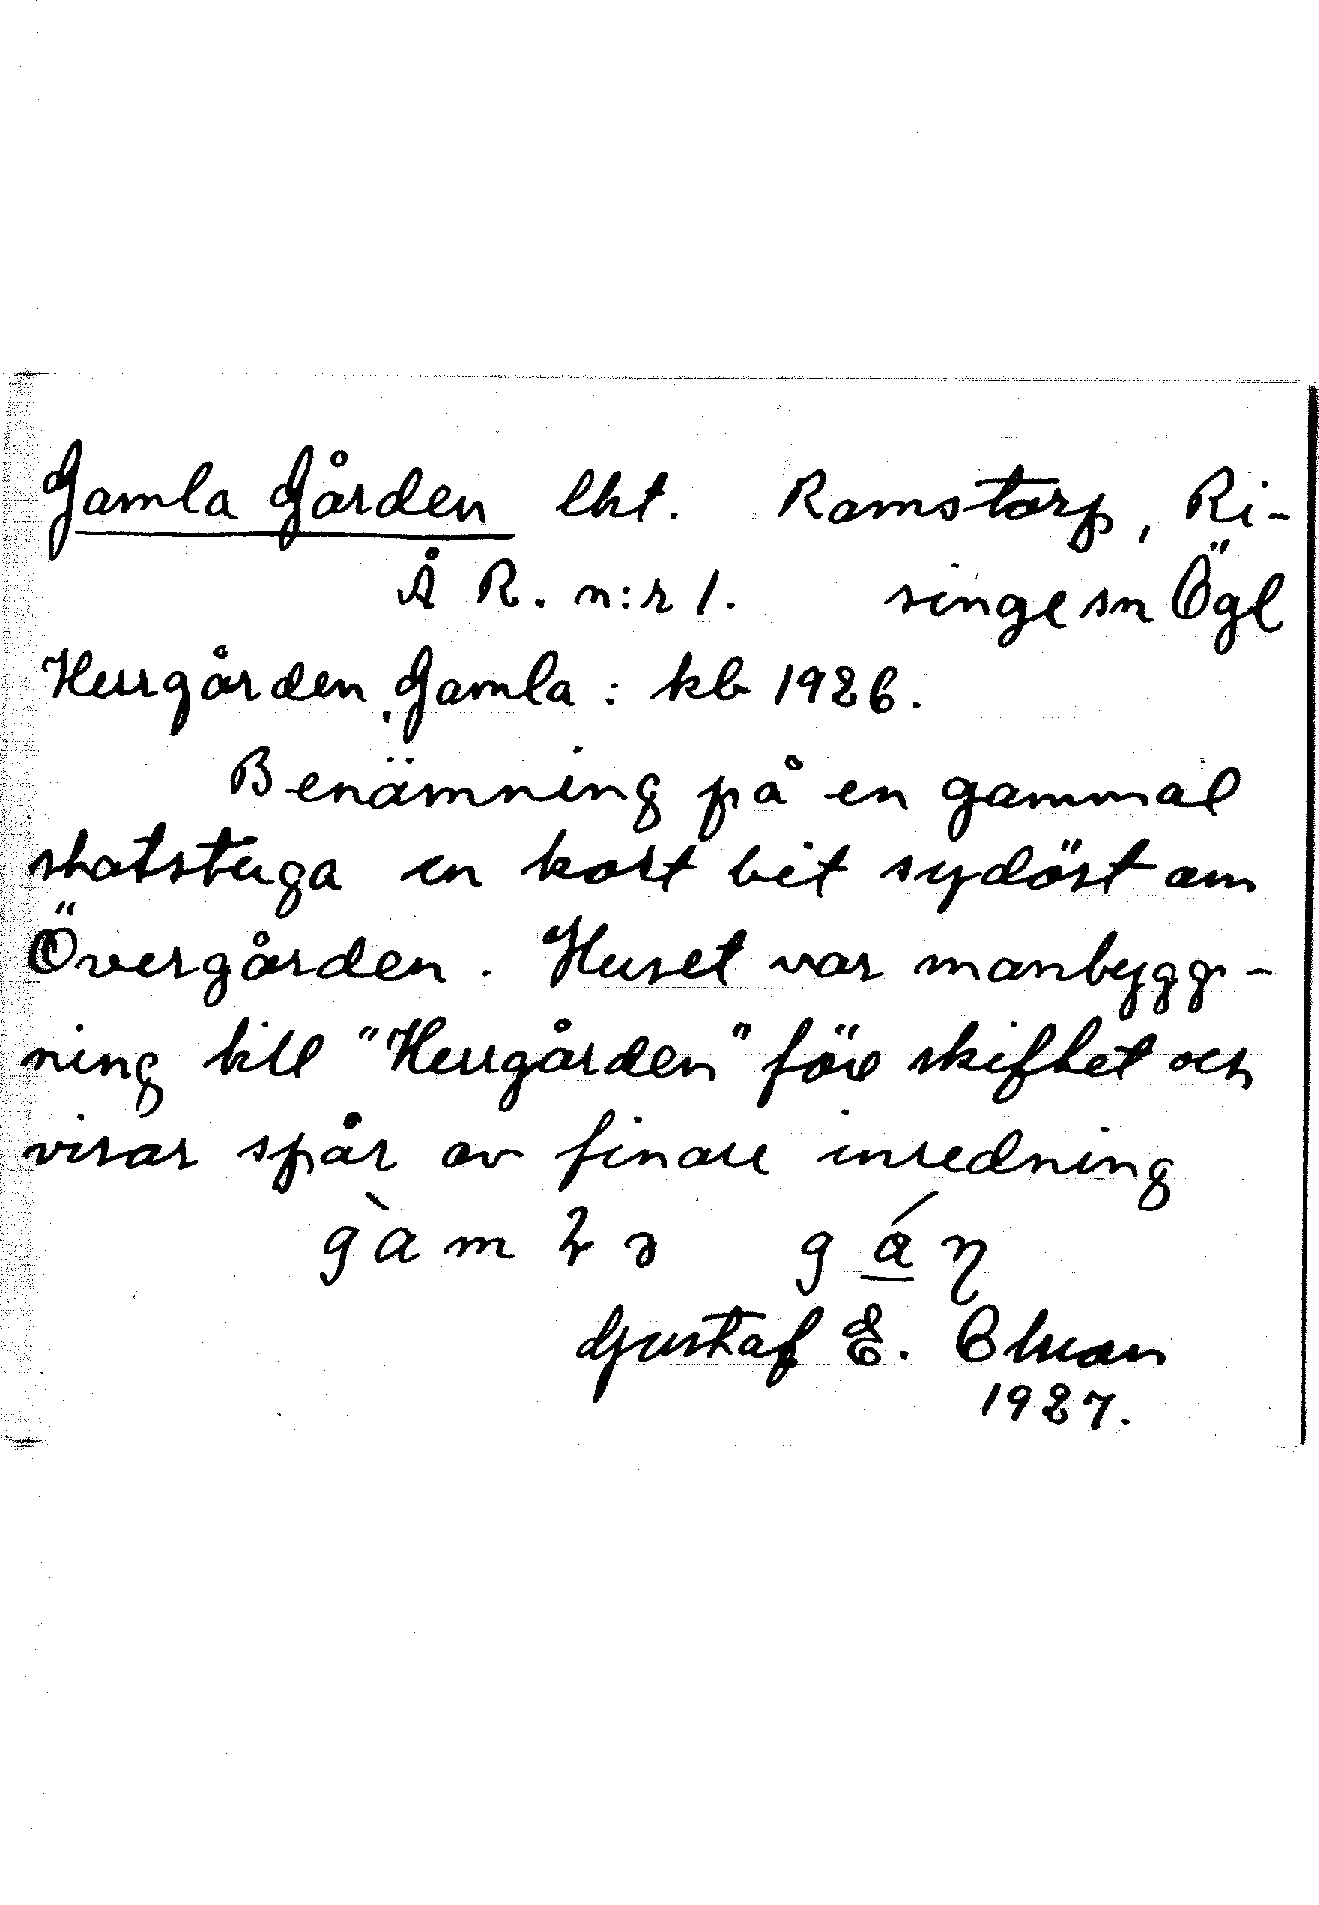 Gamla Gården lht. Ramstorp, Ri-
Å R. n:r 1. singe sn Ögl
Herrgården, Gamla: kb 1926.
Benämning på en gammal
statstuga en kort bit sydöst om
Övergården. Huset var manbygg-
ning till "Herrgården" före skiftet och
visar spår av finare inredning
gàmlə gán
Gustaf E. Olson
1927.